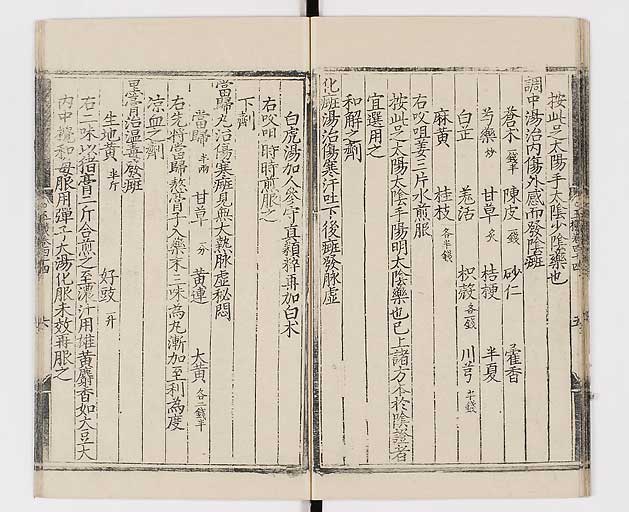 按此足太陽手太陰少陰藥也
調中湯治內傷外感而發陰斑
蒼朮 一錢半 陳皮 一錢 砂仁 藿香
芍藥 炒 甘草 炙 桔梗 半夏
白芷 羗活 枳殼 各一錢 川芎 半錢
麻黃 桂枝 各半錢
右㕮咀姜三片水煎服
按此足太陽太陰手陽明太陰藥也已上諸方不於陰證者
宜選用之
和解之劑
化斑湯治傷寒汗吐下後斑發脉虛
白虎湯加人參守真類粹再加白朮
右㕮咀時時煎服之
下劑
當歸丸治傷寒斑見無大熱脉虛秘悶
當歸 半兩 甘草 一分 黃連 大黃 各一錢半
右先將當歸熬膏子入藥末三味為丸漸加至利為度
凉血之劑
黑膏治溫毒發斑
生地黃 半斤 好豉 一升
右二味以猪膏二斤合煎之至濃汁用雄黃麝香如大豆大
內中攪和每服用彈子大湯化服未效再服之